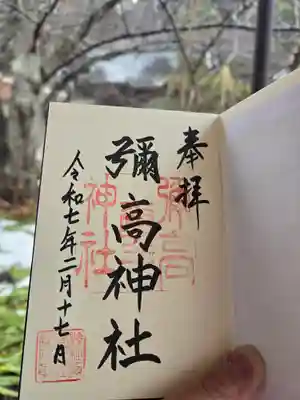 奉拝
彌高神社
令和七年二月十七日
彌高
神社